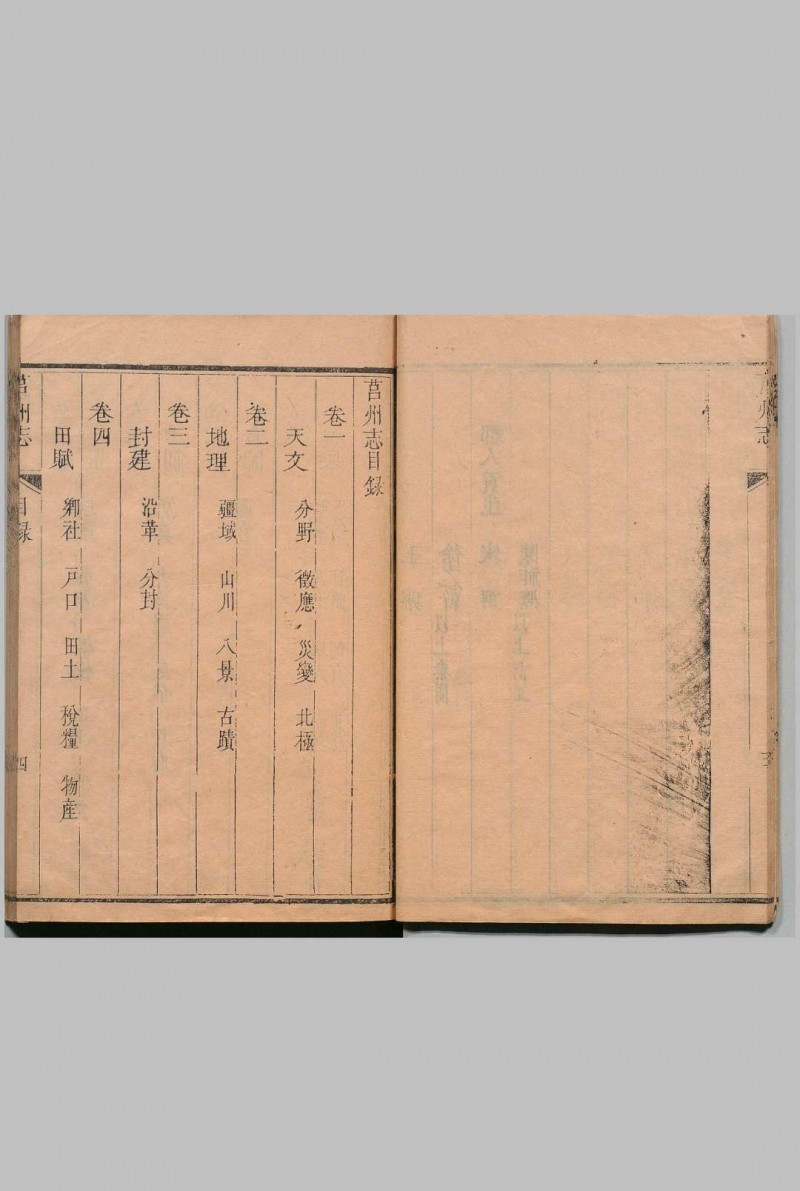 州志
三
莒州志目録
卷一
天文 分野 徵應 災變 北極
卷二
地理 疆域 山川 八景 古蹟
卷三
封建 沿革 分封
卷四
田賦 鄉社 戸口 田土 稅糧 物産
莒州志 目録 四